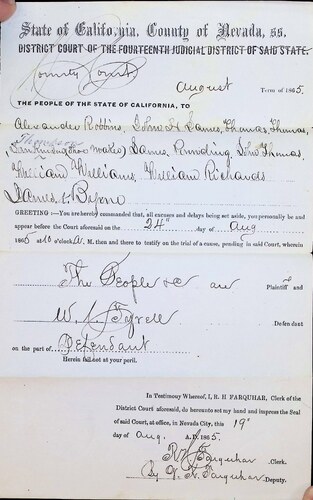 State of California, County of Nevada, ss.
DISTRICT COURT OF THE FOURTEENTH JUDICIAL DISTRICT OF SAID STATE.
County Court
August Term of 1865.
THE PEOPLE OF THE STATE OF CALIFORNIA, TO
Alexander Robbins, John H James, Thomas Thomas,
James Runding, John Thomas
William Williams, William Richards
James Byrne
GREETING:—You are hereby commanded that, all excuses and delays being set aside, you personally be and
appear before the Court aforesaid on the 24" day of Aug
1865 at 10 o'clock A. M. then and there to testify on the trial of a cause, pending in said Court, wherein
The People &c are Plaintiff and
W. Tyrell Defendant
on the part of Defendant
Herein fail not at your peril.
In Testimony Whereof, I, R. H FARQUHAR, Clerk of the
District Court aforesaid, do hereunto set my hand and impress the Seal
of said Court, at office, in Nevada City, this 19"
day of Aug. A.D. 1865.
R H Farquhar Clerk.
By Farquhar Deputy.